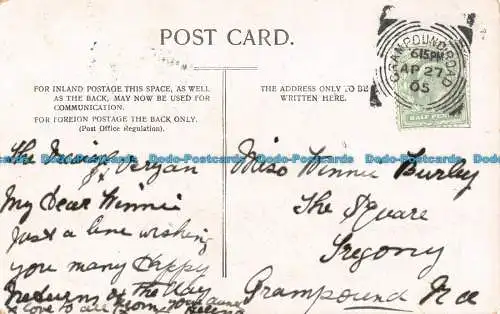 POST CARD.
GRAMPOUND ROAD
6 15 PM
AP 27
05
HALF PENNY
FOR INLAND POSTAGE THIS SPACE, AS WELL
AS THE BACK, MAY NOW BE USED FOR
COMMUNICATION.
FOR FOREIGN POSTAGE THE BACK ONLY.
(Post Office Regulation).
THE ADDRESS ONLY TO BE
WRITTEN HERE.
The
St Veryan
My Dear Winnie
Just a line wishing
you many Happy
Returns of the Day
love to all from your
Miss Winnie Burley
The Square
Tregony
Grampound Rd
Dodo-Postcards Dodo-Postcards Dodo-Postcards Dodo-Postcards